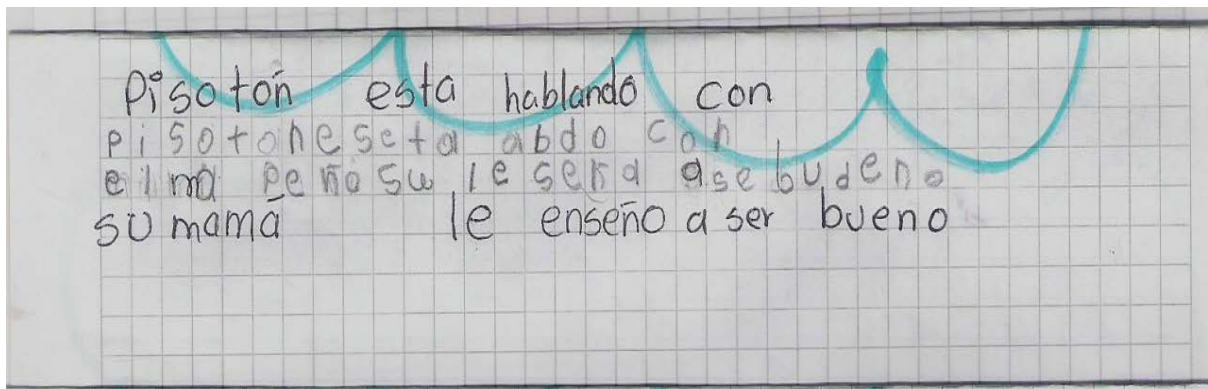 Pisotoń esta hablando con
pisotoneseta abdo con
el ma peño su le sena ase budeno
su mamá le enseño a ser bueno